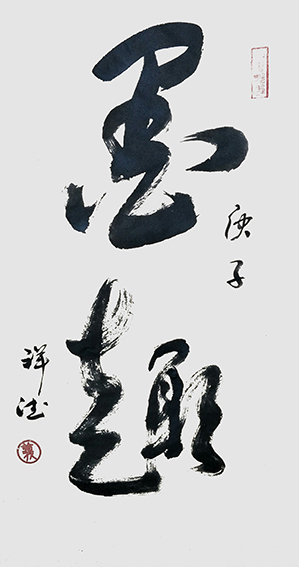 墨趣
庚子
祥德